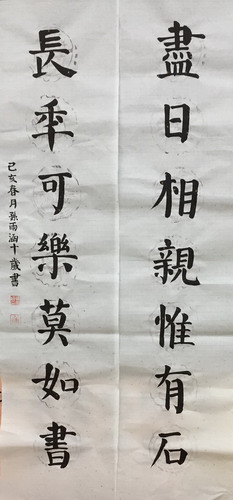 盡日相親惟有石
長年可樂莫如書
己亥春月孫雨涵十歲書